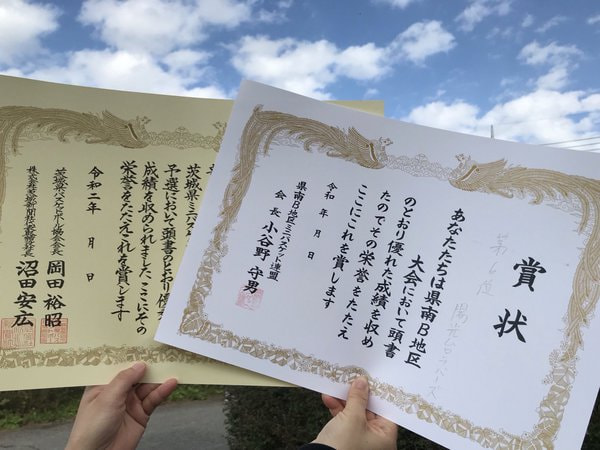 賞状
第6位
あなたたちは県南B地区
大会において頭書
のとおり優れた成績を収め
たのでその栄誉をたたえ
ここにこれを賞します
令和 年 月 日
県南B地区ミニバスケット連盟
会長 小谷野 守男
茨城県ミニバス
予選において頭書のとおり優
成績を収められました ここにその
栄誉をたたえこれを賞します
令和二年 月 日
岡田 裕昭
沼田 安広